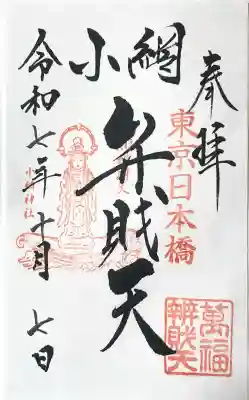 奉拝
東京日本橋
小網
弁財天
令和七年十月七日
小網神社
萬福
辨財天